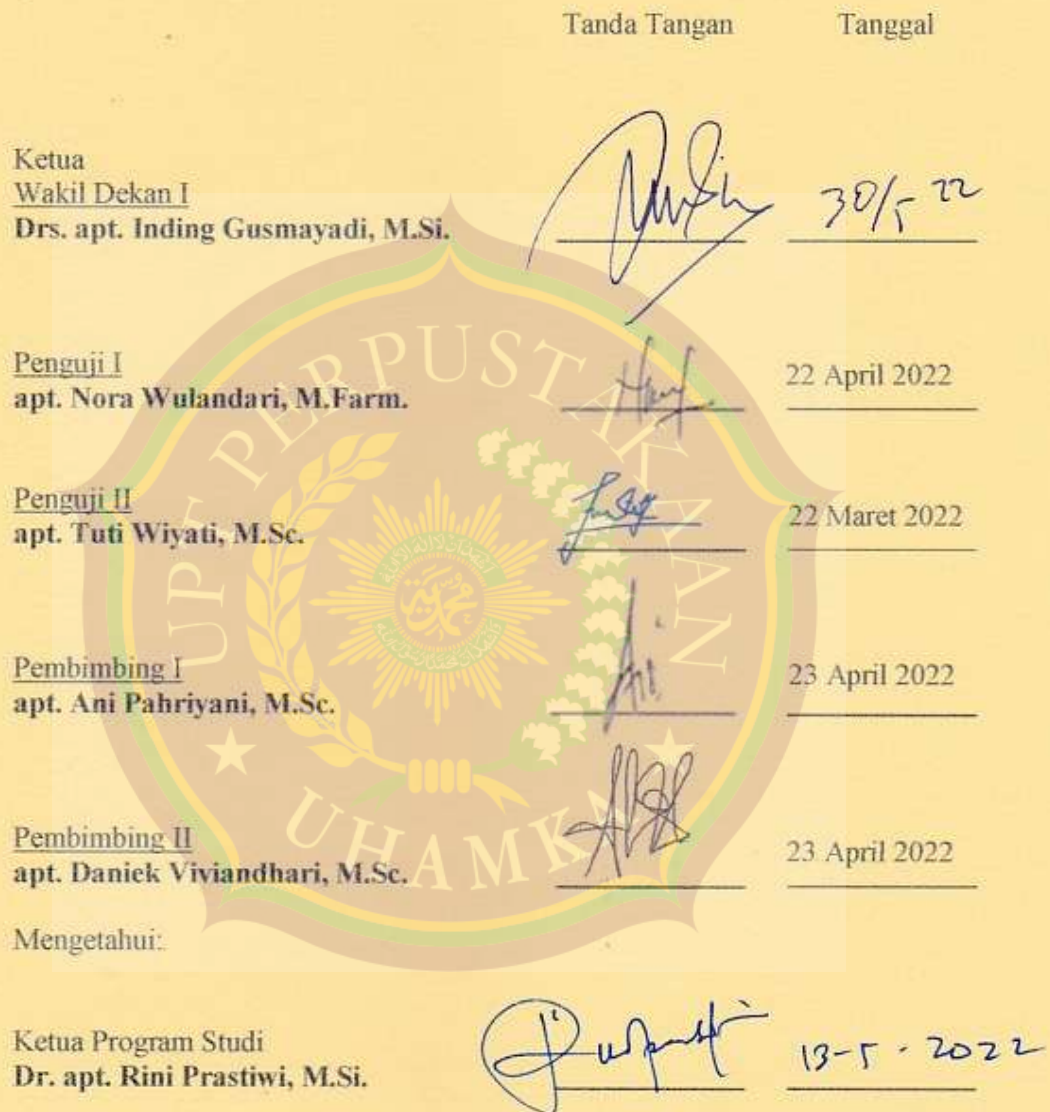 Tanda Tangan Tanggal
Ketua
Wakil Dekan I
Drs. apt. Inding Gusmayadi, M.Si.
30/5 22
Penguji I
apt. Nora Wulandari, M.Farm.
22 April 2022
Penguji II
apt. Tuti Wiyati, M.Sc.
22 Maret 2022
Pembimbing I
apt. Ani Pahriyani, M.Sc.
23 April 2022
Pembimbing II
apt. Daniek Viviandhari, M.Sc.
23 April 2022
Mengetahui:
Ketua Program Studi
Dr. apt. Rini Prastiwi, M.Si.
13-5-2022
UPT PERPUSTAKAAN
UHAMKA